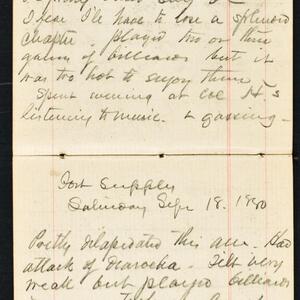 I fear I'll have to lose a splendid
chapter. played two or three
games of billiards but it
was too hot to enjoy them
Spent evening at Col H's
listening to music. & gassing—
Fort Supply
Saturday Sept 18. 1880
Pretty dilapidated this am. Had
attack of diarocha. Felt very
weak but played billiards